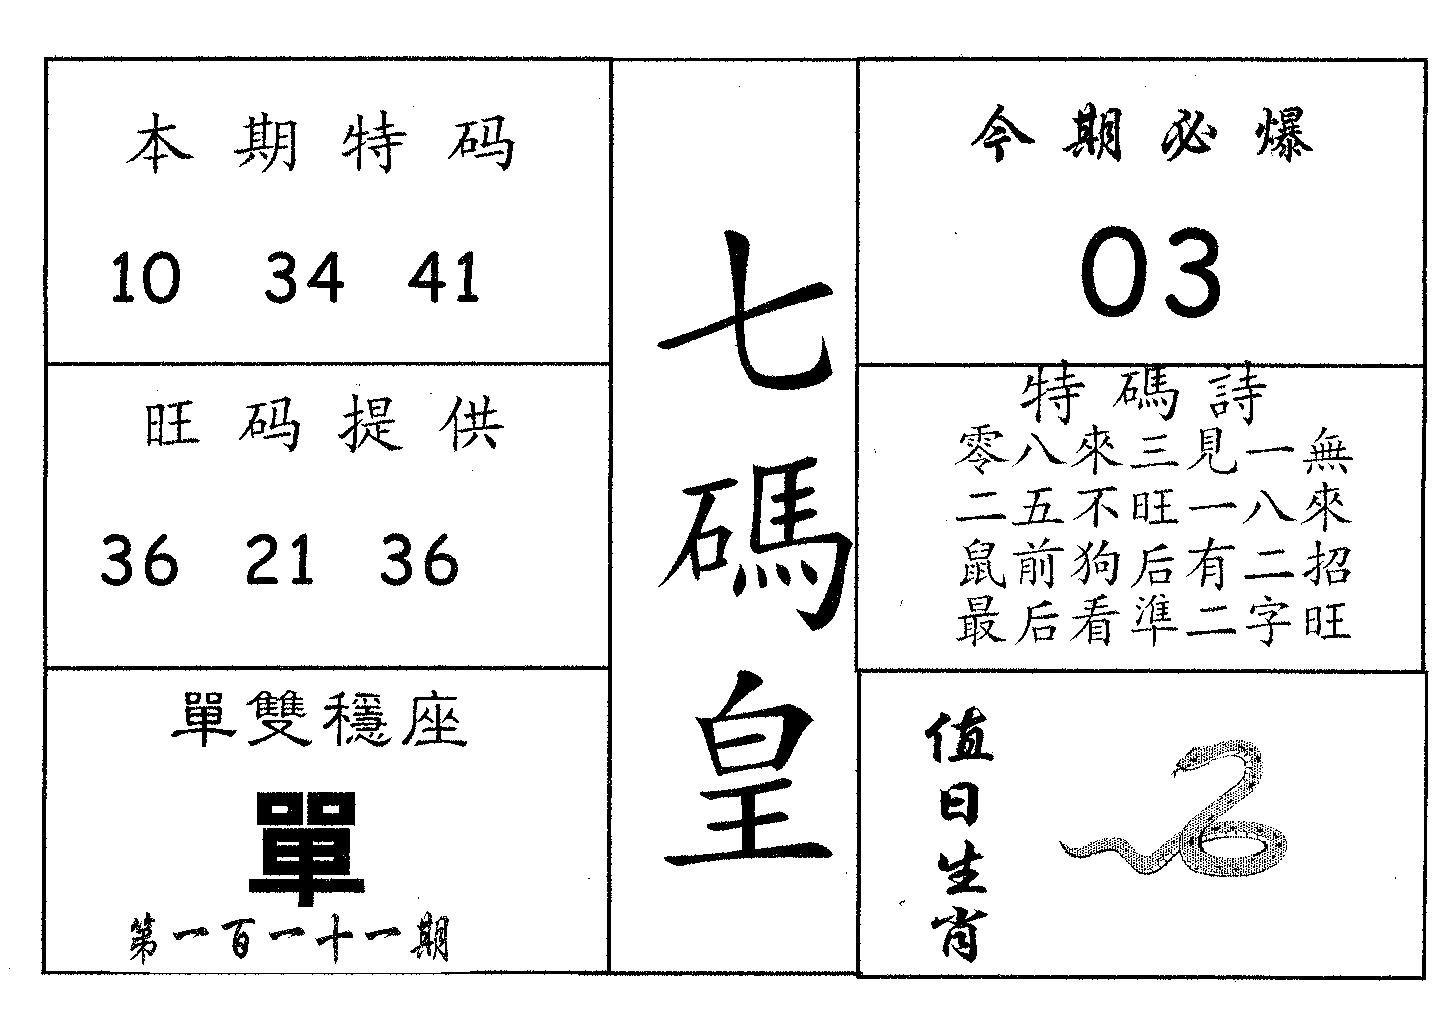 本期特码
10 34 41
旺码提供
36 21 36
單雙穩座
單
第一百一十一期
七碼皇
今期必爆
03
特碼詩
零八來三見一無
二五不旺一八來
鼠前狗后有二招
最后看準二字旺
值日生肖